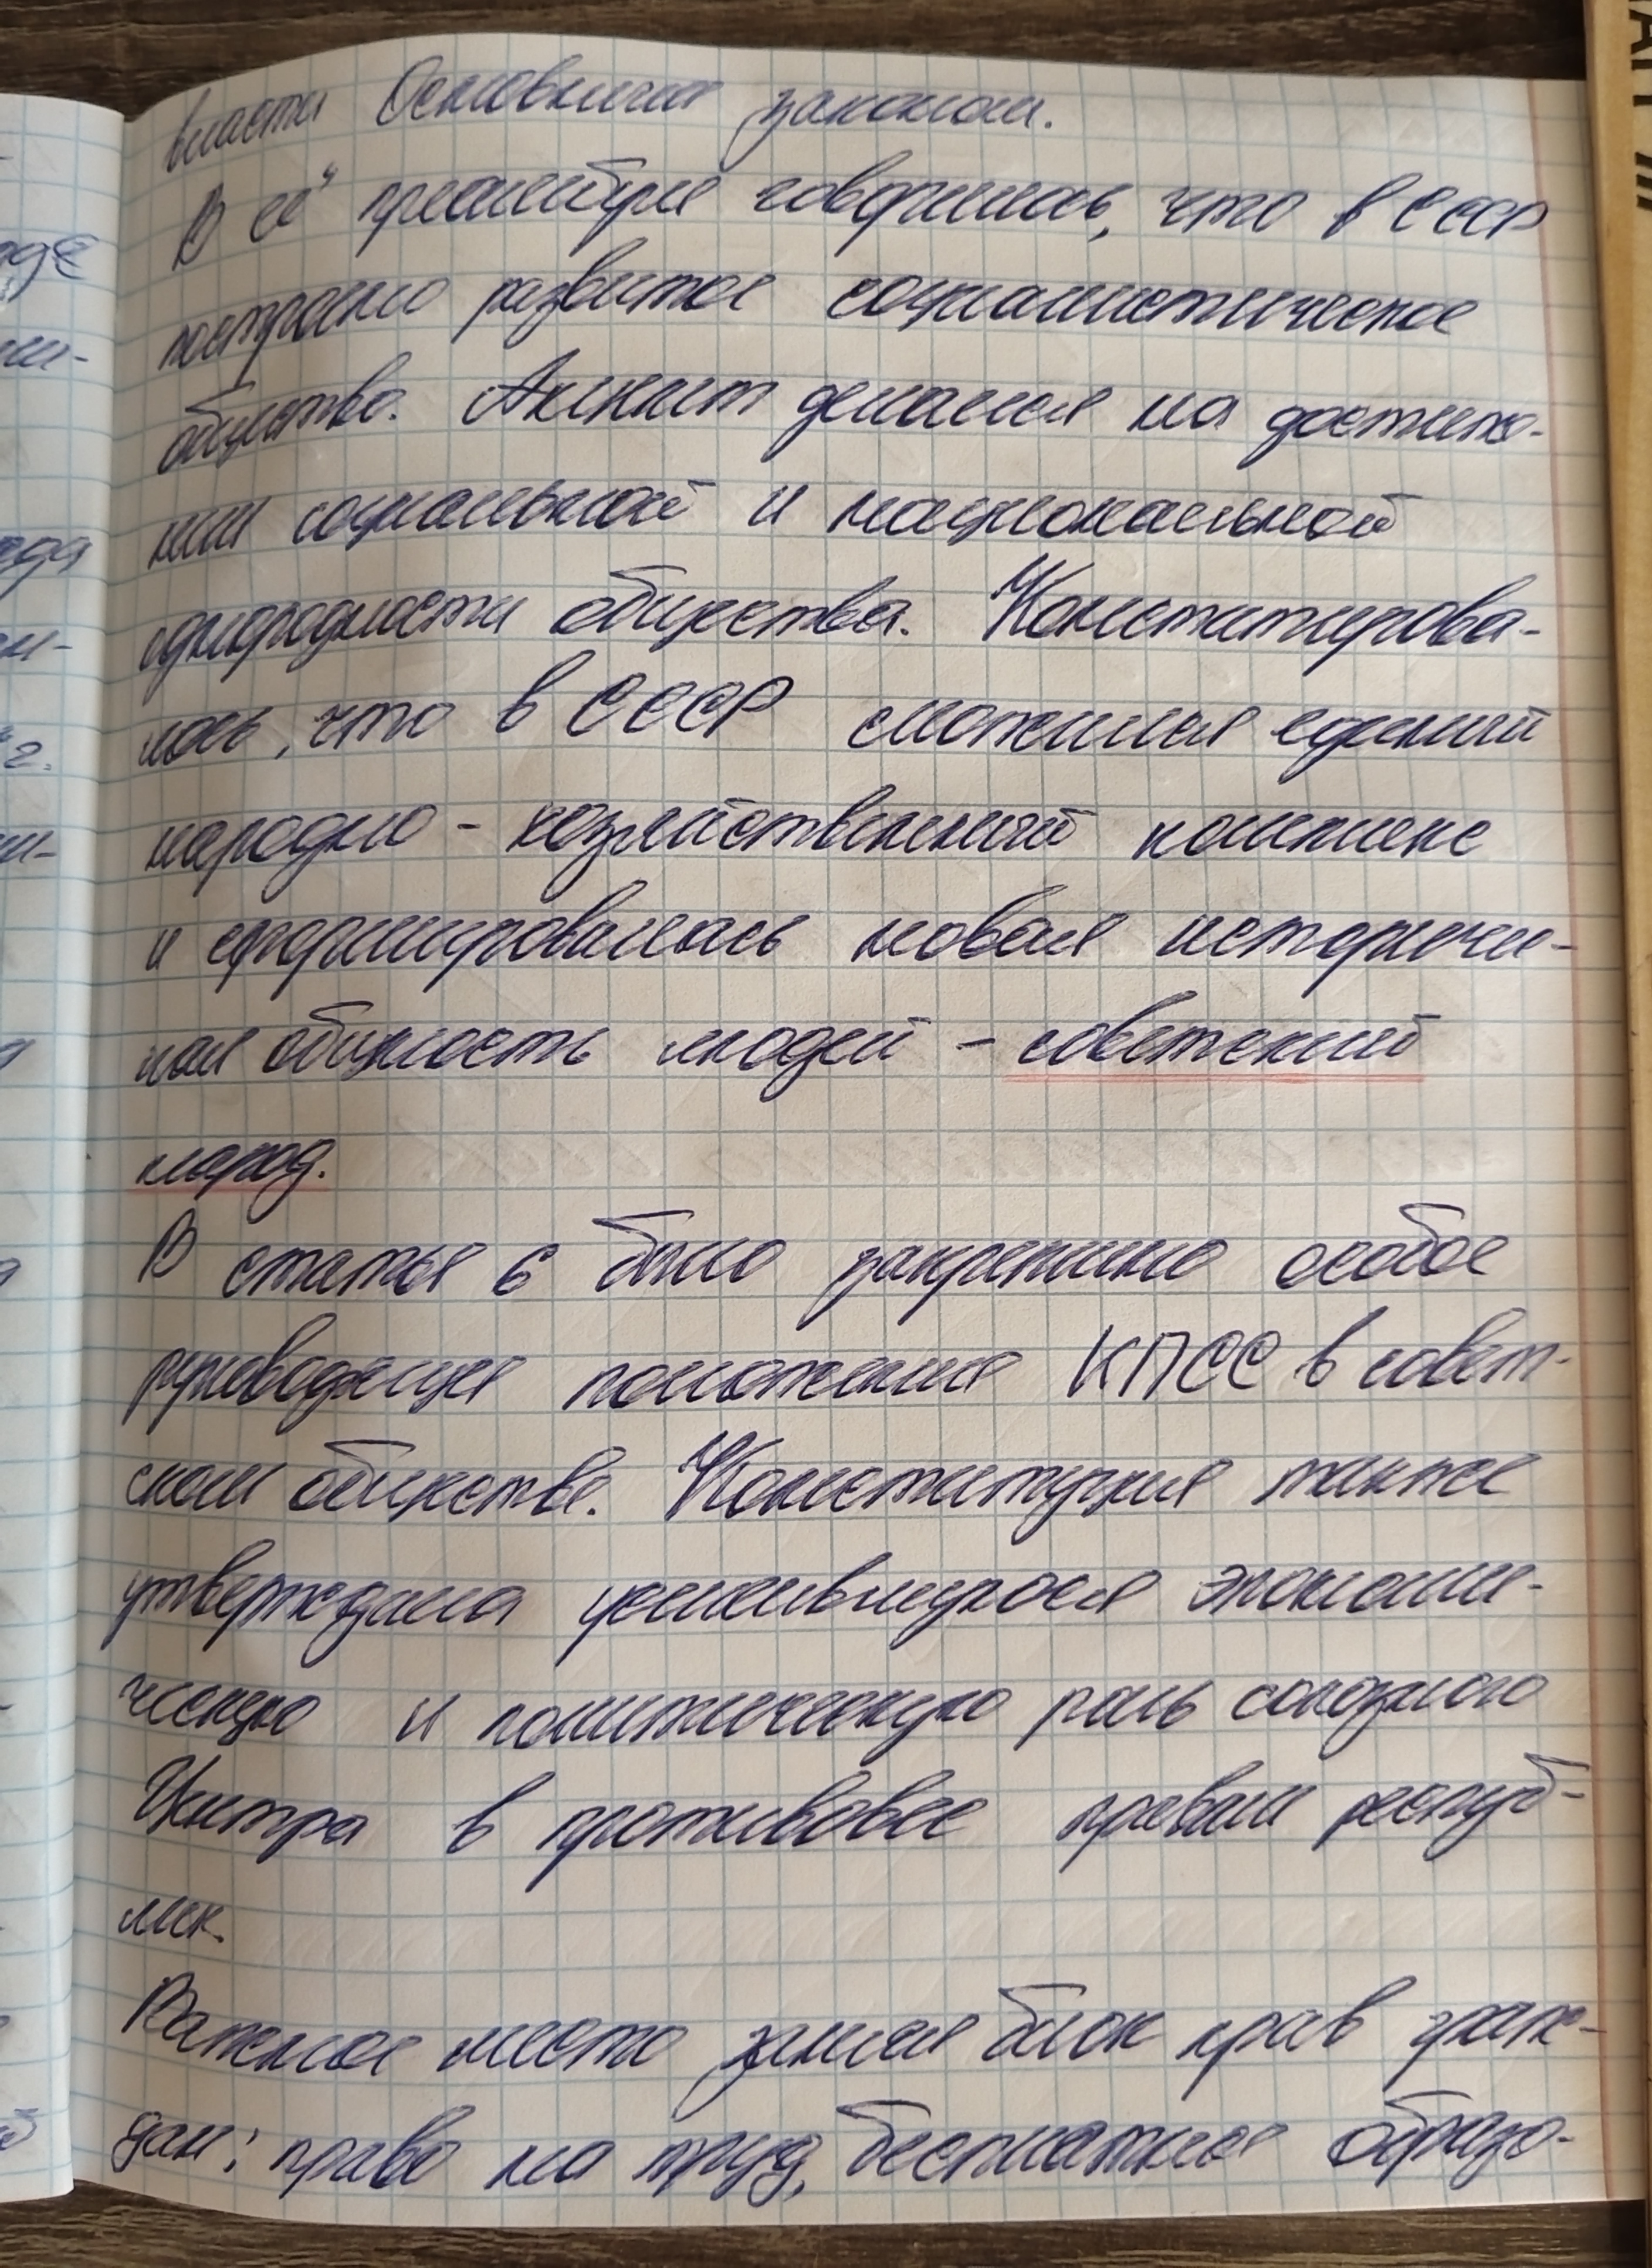 власти Основным законом.
В её преамбуле говорилось, что в СССР
построено развитое социалистическое
общество. Акцент делался на достиже-
нии социальной и национальной
однородности общества. Констатирова-
лось, что в СССР сложился единый
народно - хозяйственный комплекс
и сформировалась новая историчес-
кая общность людей - советский
народ.
В статье 6 было закреплено особое
руководящее положение КПСС в совет-
ском обществе. Конституция также
утверждала усилившуюся экономи-
ческую и политическую роль союзного
Центра в противовес правам респуб-
лик.
Важное место занял блок прав граж-
дан: право на труд, бесплатное образо-